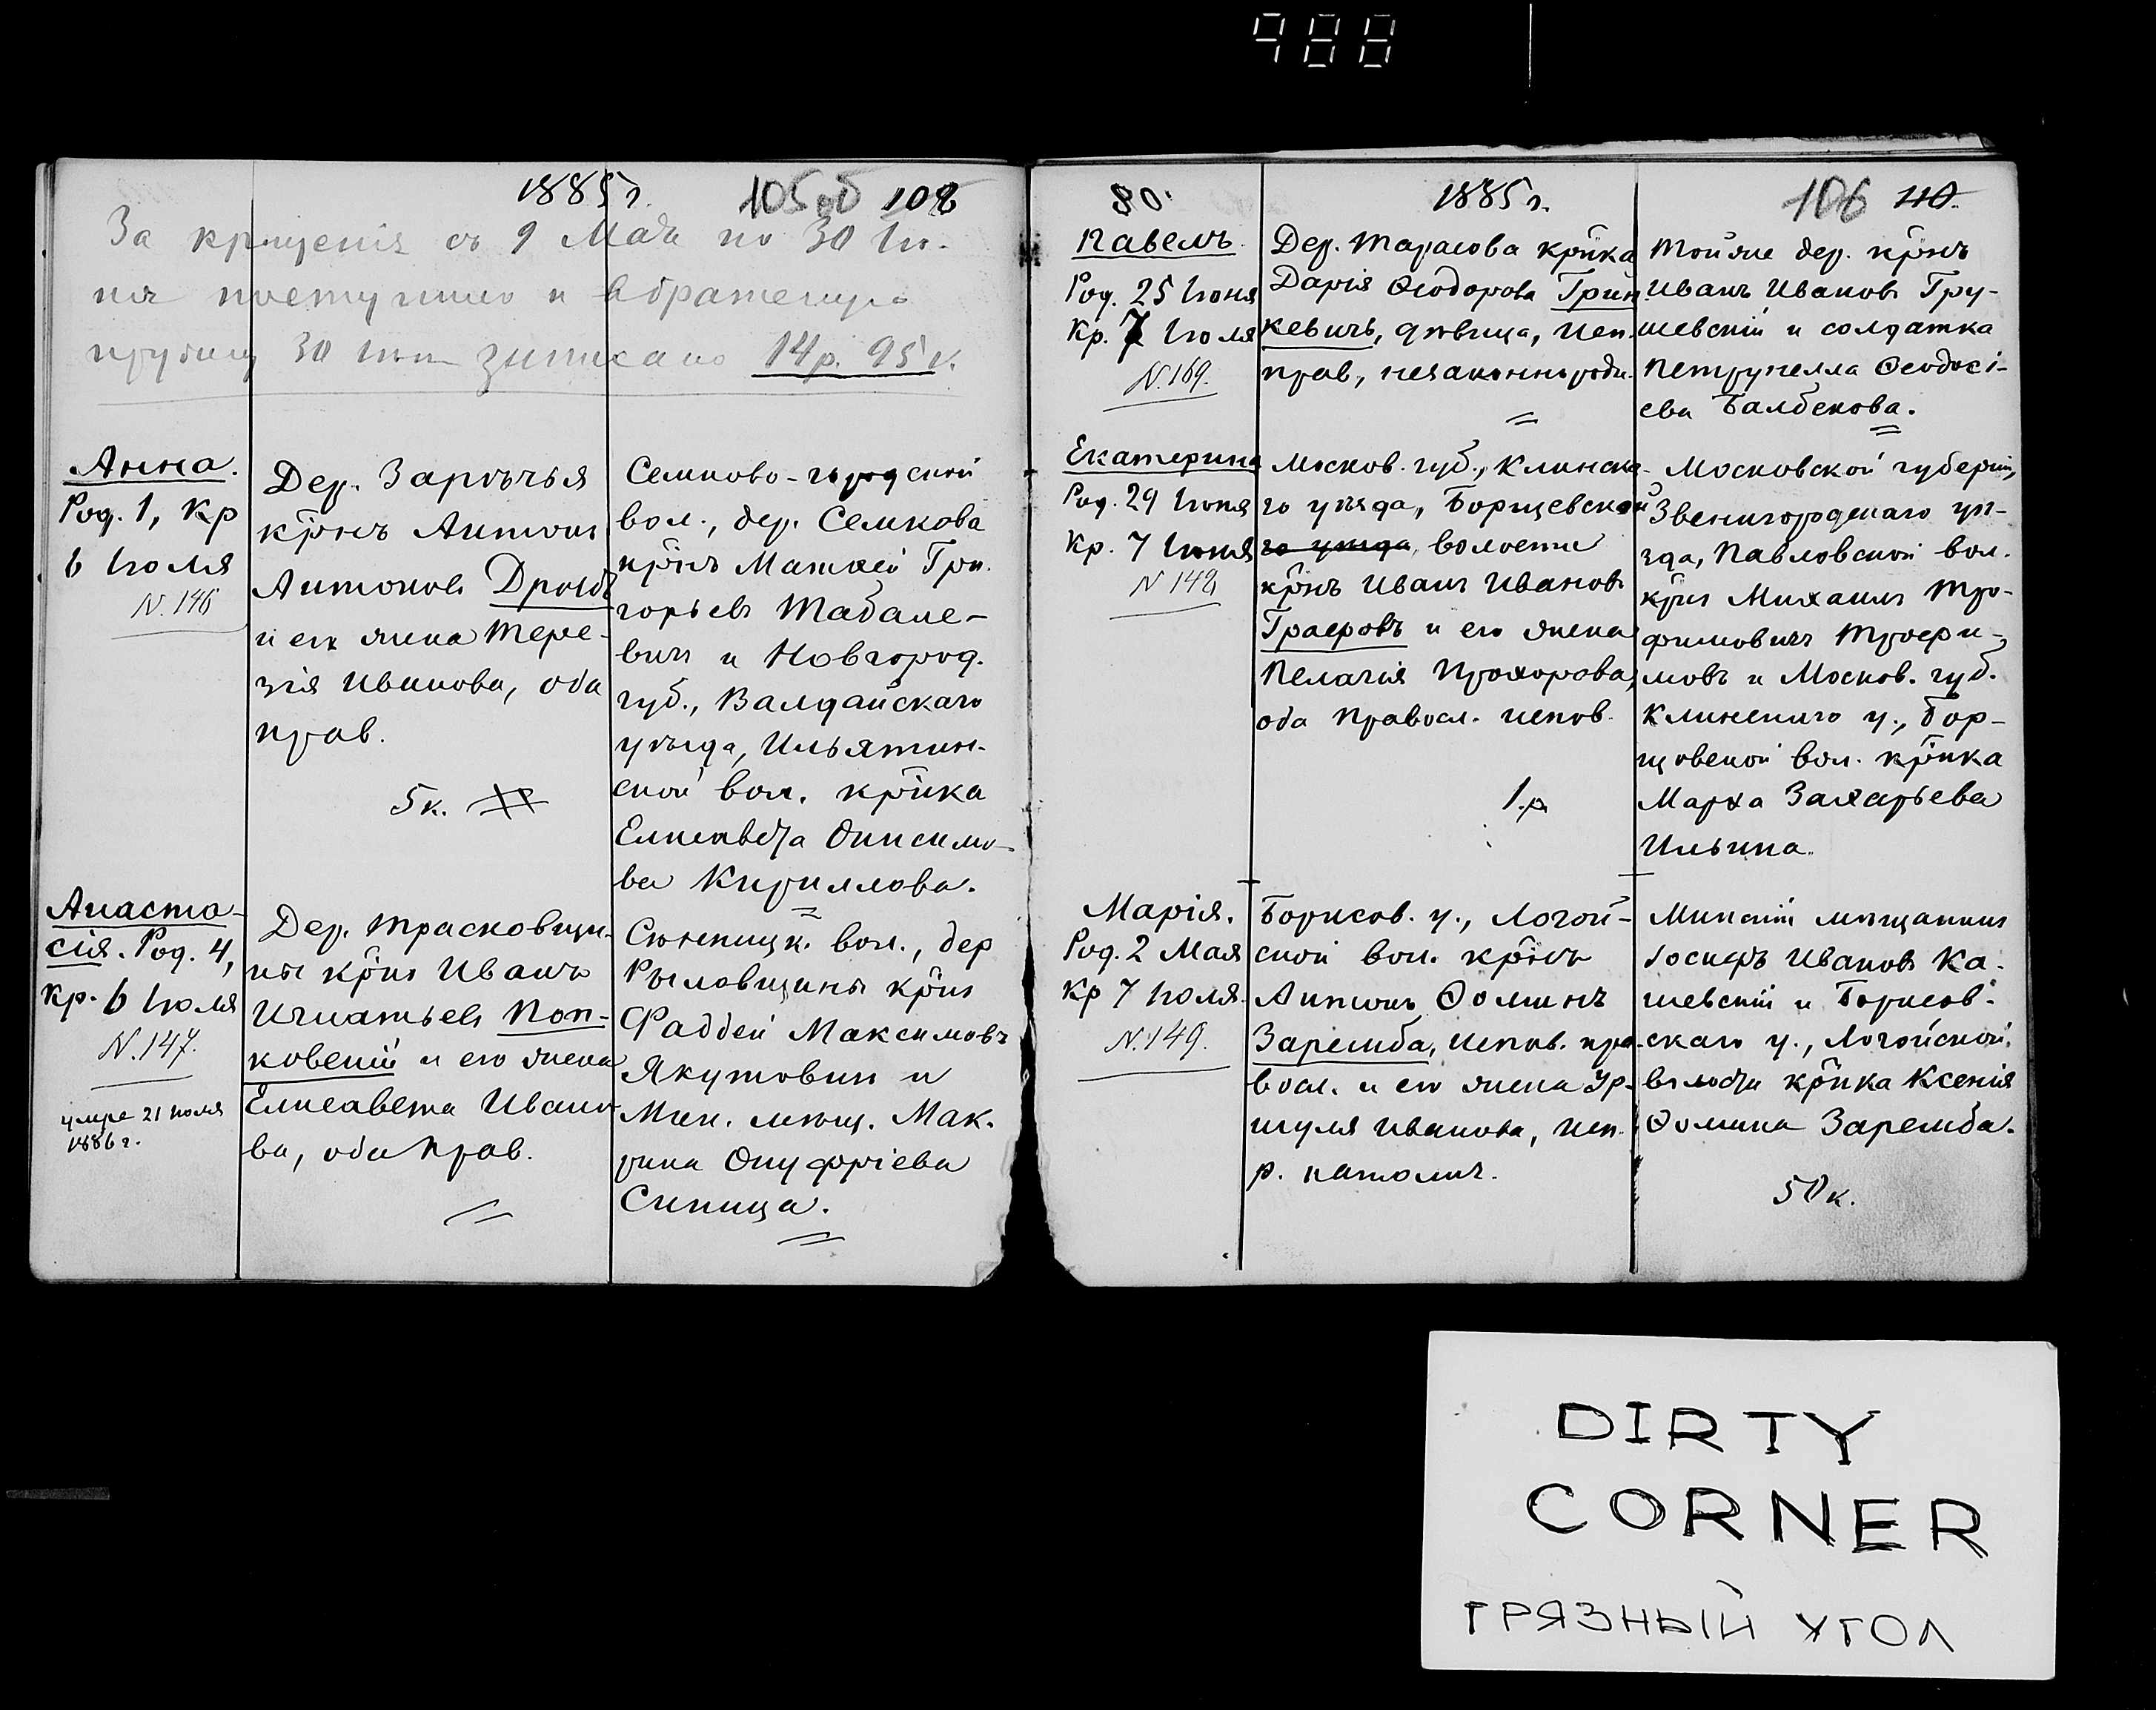 988
1885 г.
105 об 108
За крещенія съ 9 Мая по 30 Ію-
ня поступило и
30 записано 14 р. 95 к.
Анна.
Род. 1, Кр
6 Іюля
N. 146
Дер. Зарѣчья
кр̃нъ Антонъ
Антоновъ Дроздъ
и его жена Тере-
зія Иванова, оба
прав.
5 к.
Семково-городской
вол., дер. Семкова
кр̃нъ Матѳей Гри-
горьевъ
вичъ и Новгород.
губ., Валдайскаго
уѣзда, Ильятин-
ской вол. кр̃нка
Елисавета Онисимо-
ва Кириллова.
Анаста-
сія. Род. 4,
Кр. 6 Іюля
N. 147.
умре 21 іюля
1886 г.
Дер. Трасковщи-
ны кр̃нъ Иванъ
Игнатьевъ Поп-
ковскій и его жена
Елисавета Ивано-
ва, оба прав.
Сюницк. вол., дер
Рыловщины кр̃нъ
Фаддей Максимовъ
Якутовичъ и
Мин. мѣщ. Мак-
рина Онуфріева
Синица.
80.
1885 г.
106 110.
Павелъ.
Род. 25 Іюня
Кр. 7 Іюля
N. 169.
Дер. Тарасова кр̃нка
Дарія Ѳеодорова Грин-
кевичъ, дѣвица, исп.
прав, незаконнорожд.
Тойже дер. кр̃нъ
Иванъ Ивановъ Гру-
шевскій и солдатка
Петрунелла Ѳеодосі-
ева Балбекова.
Екатерина
Род. 29 Іюня
Кр. 7 Іюля
N 148
Москов. губ., Клинска-
го уѣзда, Борщевской
го уѣзда, волости
кр̃нъ Иванъ Ивановъ
Графовъ и его жена
Пелагія Прохорова,
оба правосл. испов.
1 р
Московской губерніи,
Звенигородскаго уѣ-
зда, Павловской вол.
кр̃нъ Михаилъ Тро-
фимовичъ Трофи-
мовъ и Москов. губ.
Клинскаго у., Бор-
щовской вол. кр̃нка
Марѳа Захарьева
Ильина.
Марія.
Род. 2 Мая
Кр 7 Іюля.
N. 149.
Борисов. у., Логой-
ской вол. кр̃нъ
Антонъ Ѳоминъ
Заремба, испов. пра-
восл. и его жена Ур-
шуля Иванова, исп.
р. католич.
Минскій мѣщанинъ
Іосифъ Ивановъ Ка-
шевскій и Борисов-
скаго у., Логойской
волости кр̃нка Ксенія
Ѳомина Заремба.
50 к.
DIRTY
CORNER
ГРЯЗНЫЙ УГОЛ